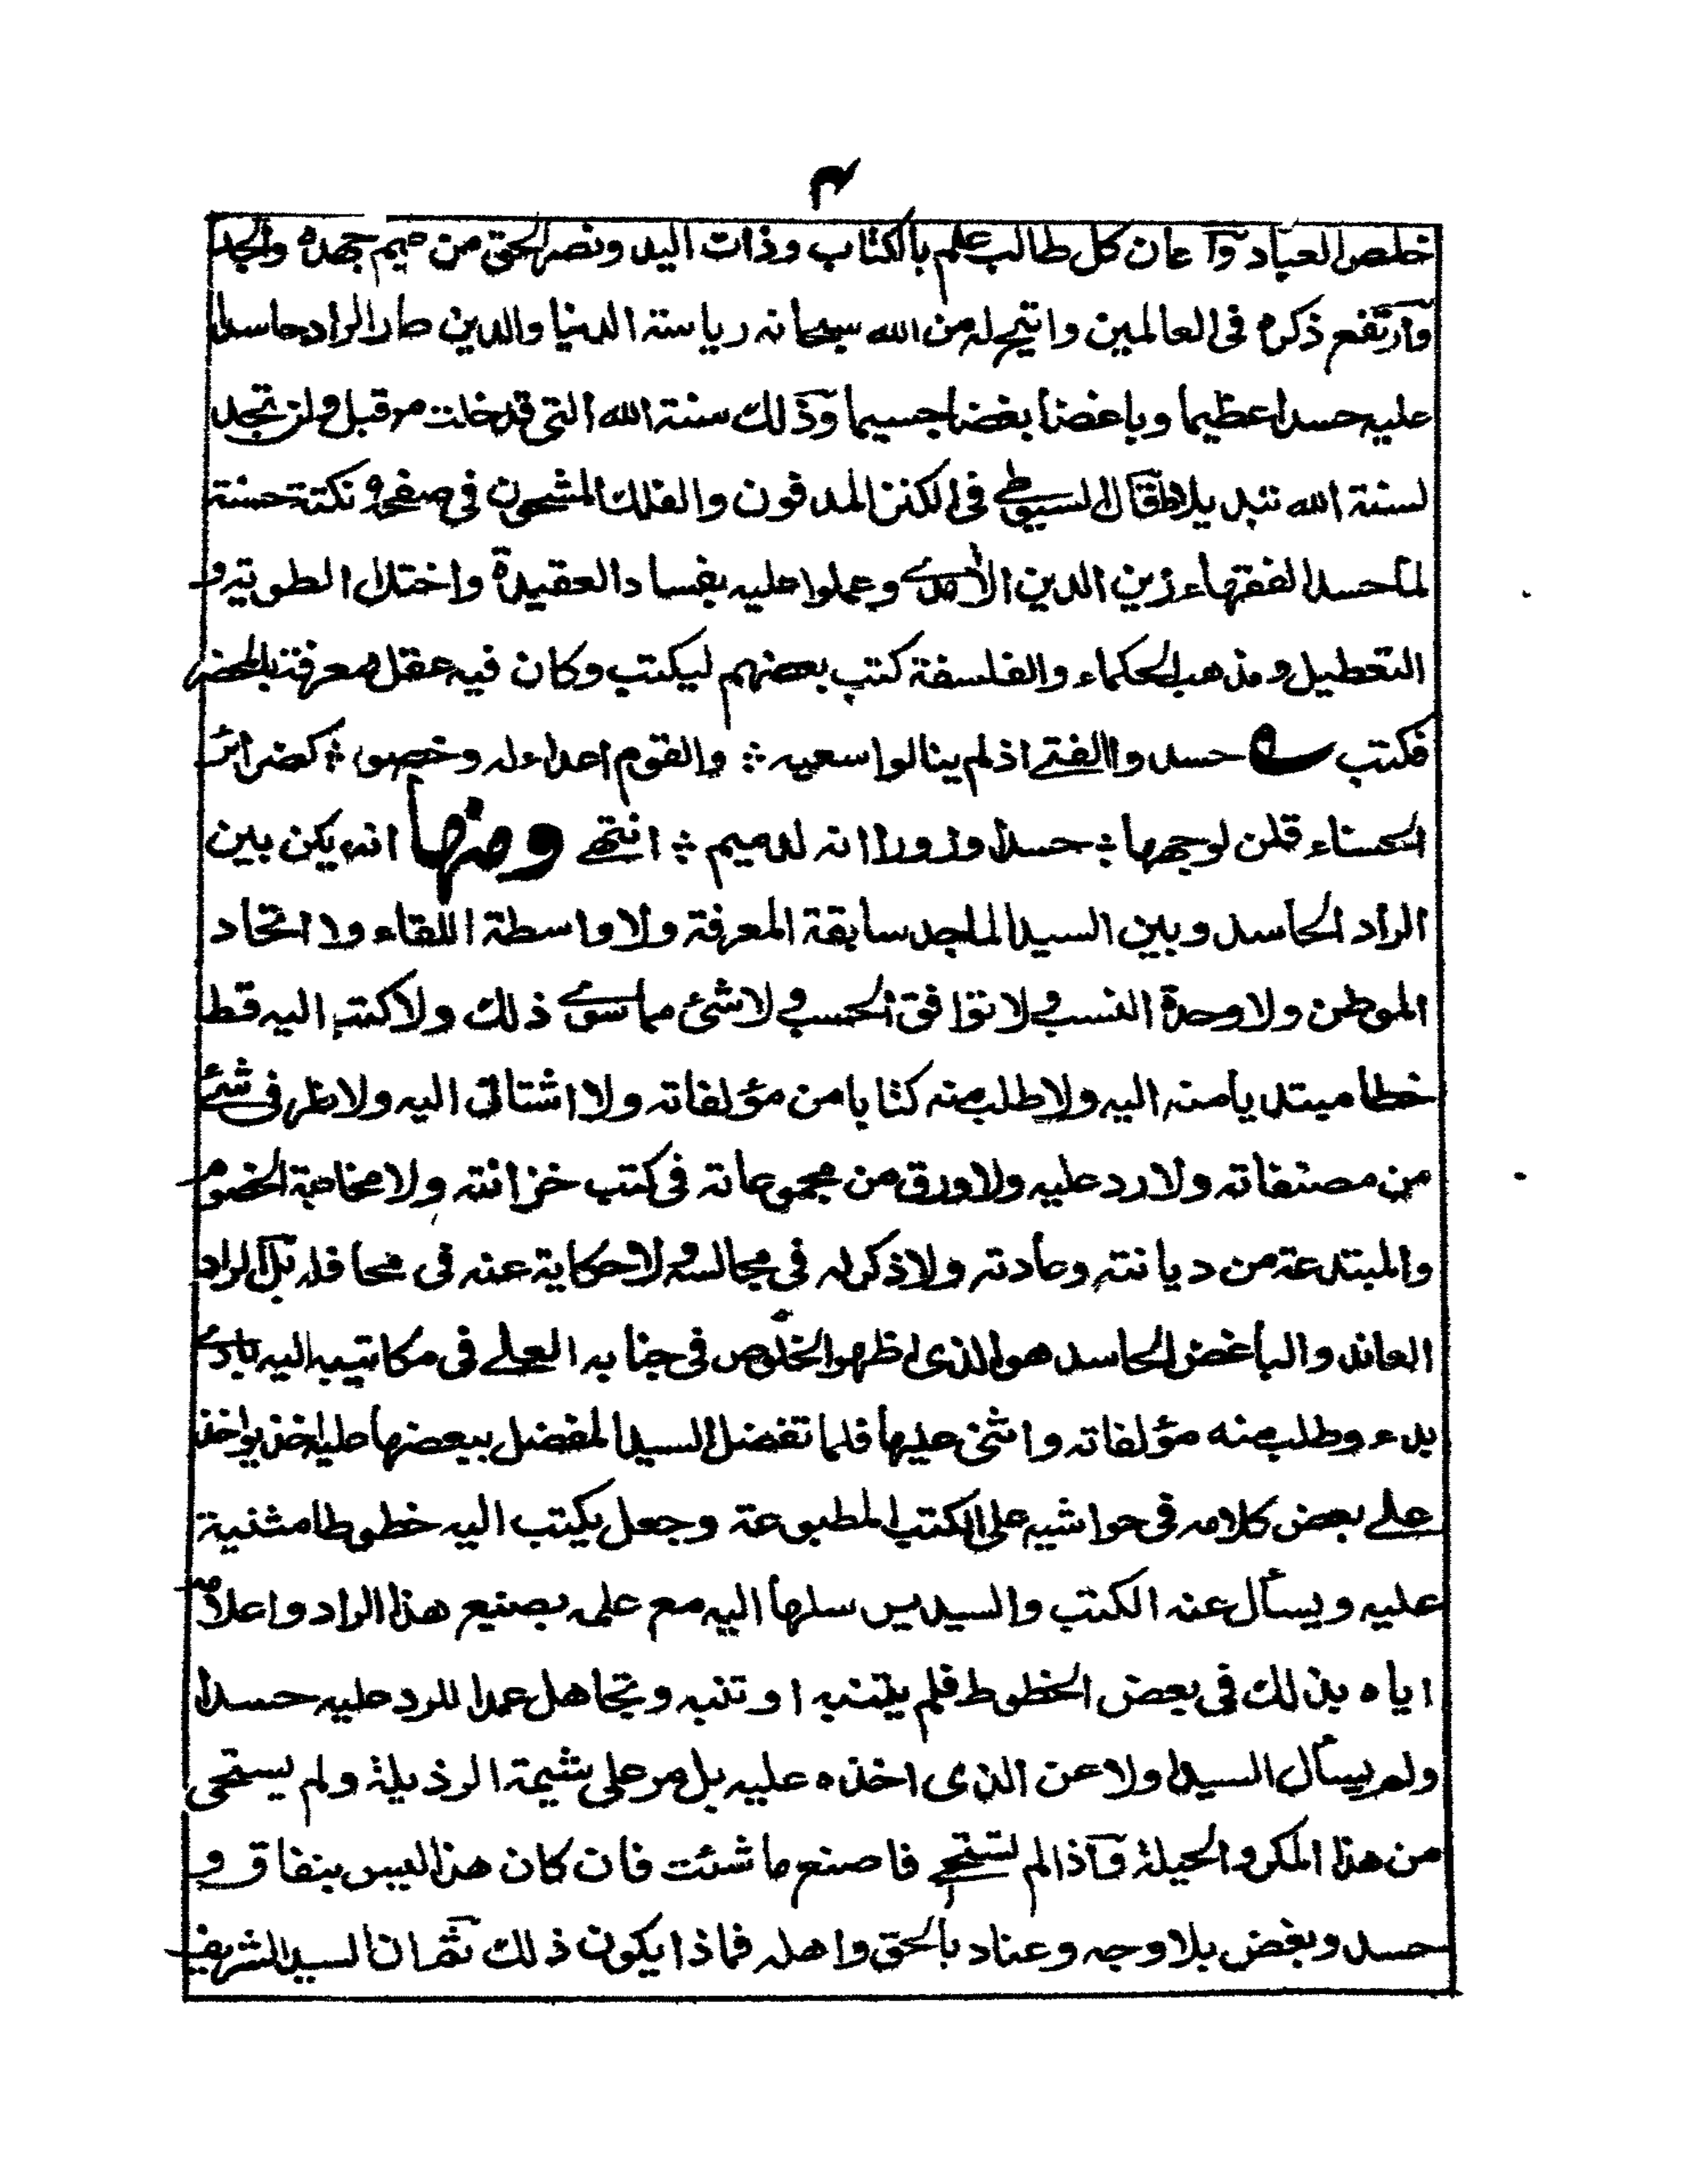 ۳
خلص العباد وآعان كل طالب علم بالكتاب وذات اليد ونصر الحق من صميم جهده والجد
وآرتفع ذكره فى العالمين واتيح له من الله سبحانه رياسة الدنيا والدين صار الراد حاسدا
عليه حسدا عظيما وباغضا بغضا جسيما وذلك سنة الله التى قد خلت من قبل ولن تجد
لسنة الله تبديلا قال السيوطى فى الكنز المدفون والفلك المشحون فى صفحة نكتة حسنة
لما حسد الفقهاء زين الدين الآمدے وعملوا عليه بفساد العقيدة واختلال الطوية و
التعطيل ومذهب الحكماء والفلسفة كتب بعضهم ليكتب وكان فيه عقل ومعرفة بالمحضر
فكتب حسدوا الفتے اذ لم ينالوا سعيه ؞ والقوم اعداء له وخصوم ؞ كضرائر
الحسناء قلن لوجهها ؞ حسدا وزورا انه لدميم ؞ انتهے ومنها انه يكن بين
الراد الحاسد وبين السيد الماجد سابقة المعرفة ولا واسطة اللقاء ولا اتحاد
الموطن ولا وحدة النسب ولا توافق الحسب ولا شئ مما سوے ذلك ولا كتب اليه قط
خطا مبتديا منه اليه ولا طلب منه كتابا من مؤلفاته ولا اشتاق اليه ولا نظر فى شئے
من مصنفاته ولا رد عليه ولا ورق من مجموعاته فى كتب خزانته ولا مخاصمة الخصوم
والمبتدعة من ديانته وعادته ولا ذكر له فى مجالسه ولا حكاية عنه فى محافله بل الراد
العاند والباغض الحاسد هو الذى اظهر الخلوص فى جنابه العلے فى مكاتيبه اليه بادے
بدء وطلب منه مؤلفاته واثنى عليها فلما تفضل السيد المفضل ببعضها عليه اخذ يواخذ
علے بعض كلامه فى حواشيه على الكتب المطبوعة وجعل يكتب اليه خطوطا مثنية
عليه ويسأل عنه الكتب والسيد يرسلها اليه مع علمه بصنيع هذا الراد واعلامه
اياه بذلك فى بعض الخطوط فلم يتنبه او تنبه وتجاهل عمدا للرد عليه حسدا
ولم يسأل السيد اولا عن الذى اخذه عليه بل مر على شيمة الرذيلة ولم يستحى
من هذا المكر والحيلة وآذا لم تستحے فاصنع ما شئت فان كان هذا ليس بنفاق و
حسد وبغض بلا وجه وعناد بالحق واهله فماذا يكون ذلك ثم ان السيد الشريف